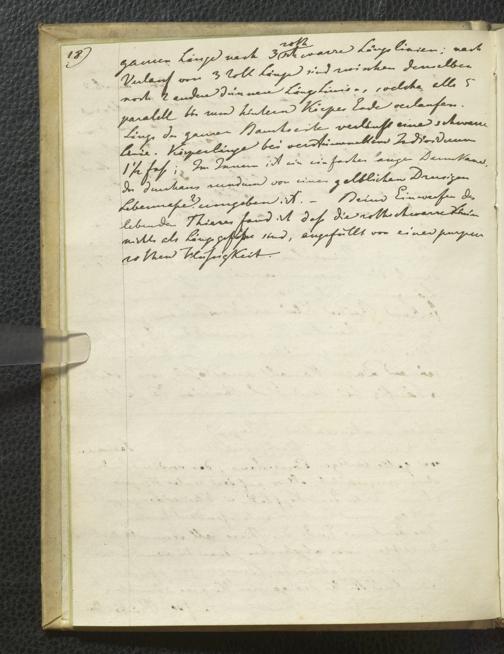 18)
ganzen Länge nach 3 roth schwarze Längslinien; nach
Verlauf von 3 Zoll Länge sind zwischen denselben
noch 2 andere dünnere Längslinien, welche alle 5
parallel bis zum hintern Körper Ende verlaufen.
Längs der ganzen Bauchseite verläuft eine schwarze
Linie. Körperlänge bei verstümmelten Individuum
1½ fuß; Im Innern ist ein einfacher langer Darmkanal,
der durchaus rundum von einer gelblichen Drüsigen
Lebermasse? umgeben ist. — Beim Einwerfen des
lebenden Thieres fand ich daß die rothschwarze Linien
nichts als Längsgefäße sind, angefüllt von einer purpur
rothen Flüßigkeit